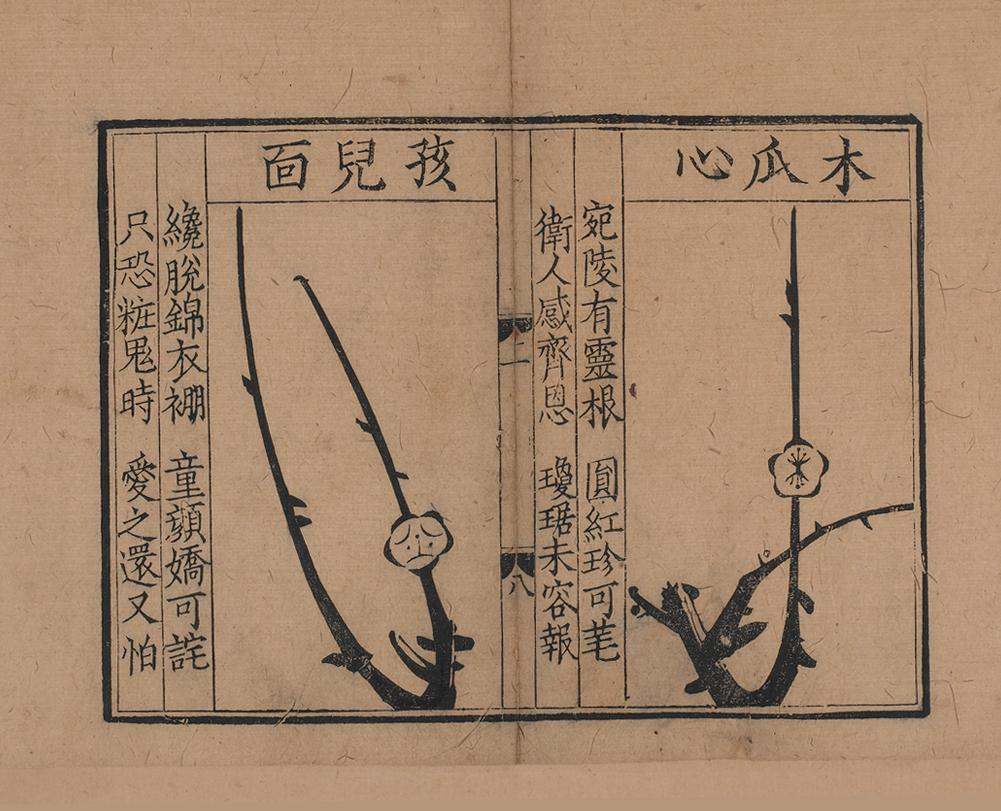 木瓜心
宛陵有靈根　圓紅珍可芼
衛人感齊恩　瓊琚未容報
二
八
孩兒面
纔脫錦衣襁　童顏嬌可詫
只恐粧鬼時　愛之還又怕